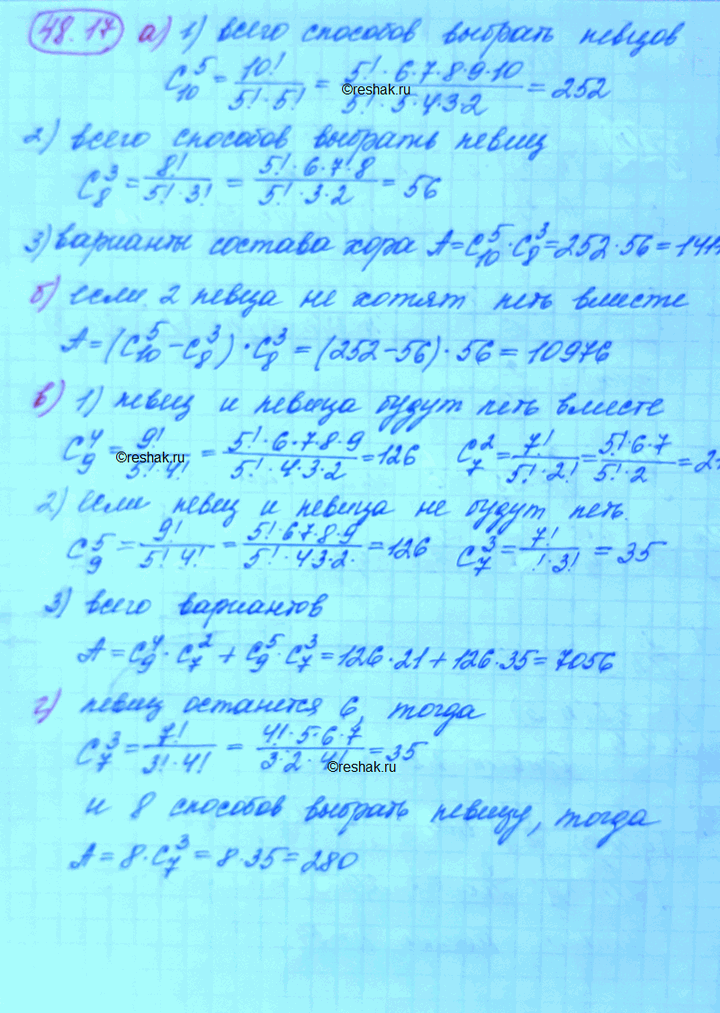 48.17 а) 1) всего способов выбрать певцов
C₁₀⁵ = 10!/(5!·5!) = (5!·6·7·8·9·10)/(5!·5·4·3·2) = 252
©reshak.ru
2) всего способов выбрать певиц
C₈³ = 8!/(5!·3!) = (5!·6·7·8)/(5!·3·2) = 56
3) варианты состава хора A=C₁₀⁵·C₈³=252·56=1411
б) если 2 певца не хотят петь вместе
A=(C₁₀⁵−C₈³)·C₈³=(252−56)·56=10976
в) 1) певец и певица будут петь вместе
C₉⁴ = 9!/(5!·4!) = (5!·6·7·8·9)/(5!·4·3·2) = 126 C₇² = 7!/(5!·2!) = (5!·6·7)/(5!·2) = 2
©reshak.ru
2) если певец и певица не будут петь.
C₉⁵ = 9!/(5!4!) = (5!·6·7·8·9)/(5!·4·3·2·) = 126 C₇³ = 7!/(!·3!) = 35
3) всего вариантов
A=C₉⁴·C₇²+C₉⁵·C₇³=126·21+126·35=7056
г) певиц останется 6, тогда
C₇³ = 7!/(3!·4!) = (4!·5·6·7)/(3·2·4!) = 35
©reshak.ru
и 8 способов выбрать певицу, тогда
A=8·C₇³=8·35=280